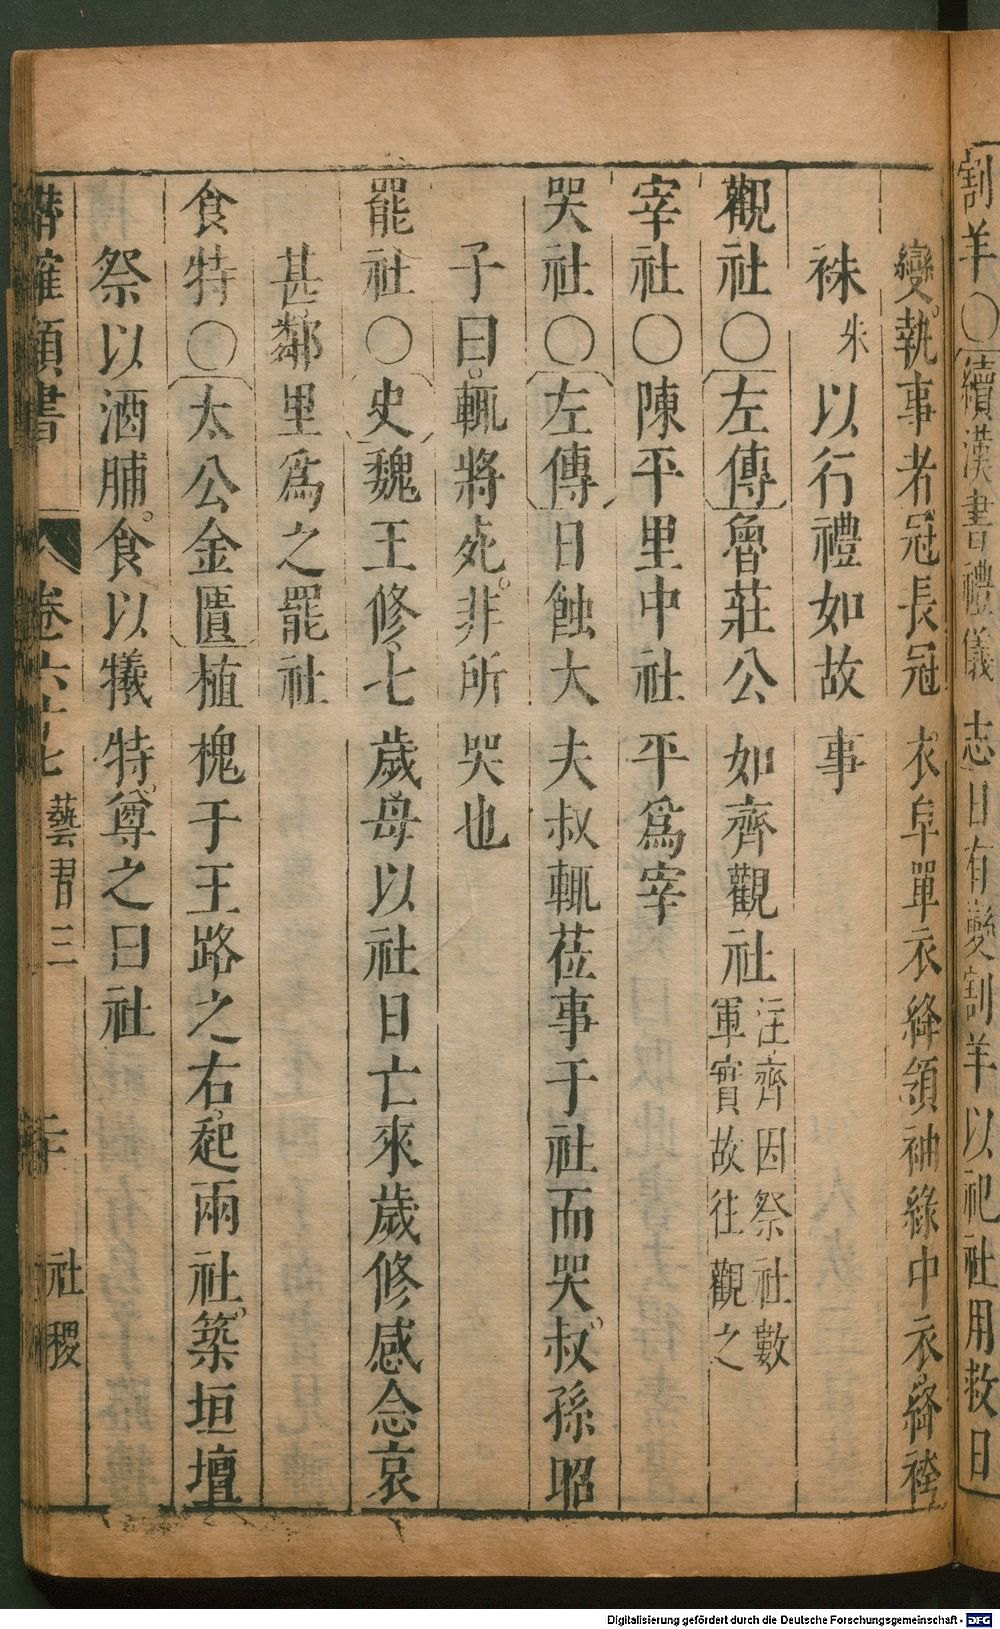 割羊〇續漢書禮儀志日有變割羊以祀社用救日
變執事者冠長冠衣皁單衣絳領袖緣中衣絳袴
袜朱以行禮如故事
觀社〇左傳魯莊公如齊觀社注齊因祭社數軍實故往觀之
宰社〇陳平里中社平爲宰
哭社〇左傳日蝕大夫叔輒莅事于社而哭叔孫昭
子曰輒將死非所哭也
罷社〇史魏王修七歲母以社日亡來歲修感念哀
甚鄰里爲之罷社
食特〇太公金匱植槐于王路之右起兩社築垣壇
祭以酒脯食以犧特尊之曰社
潛確類書 卷六十七 藝習三 二十 社稷
Digitalisierung gefördert durch die Deutsche Forschungsgemeinschaft - DFG